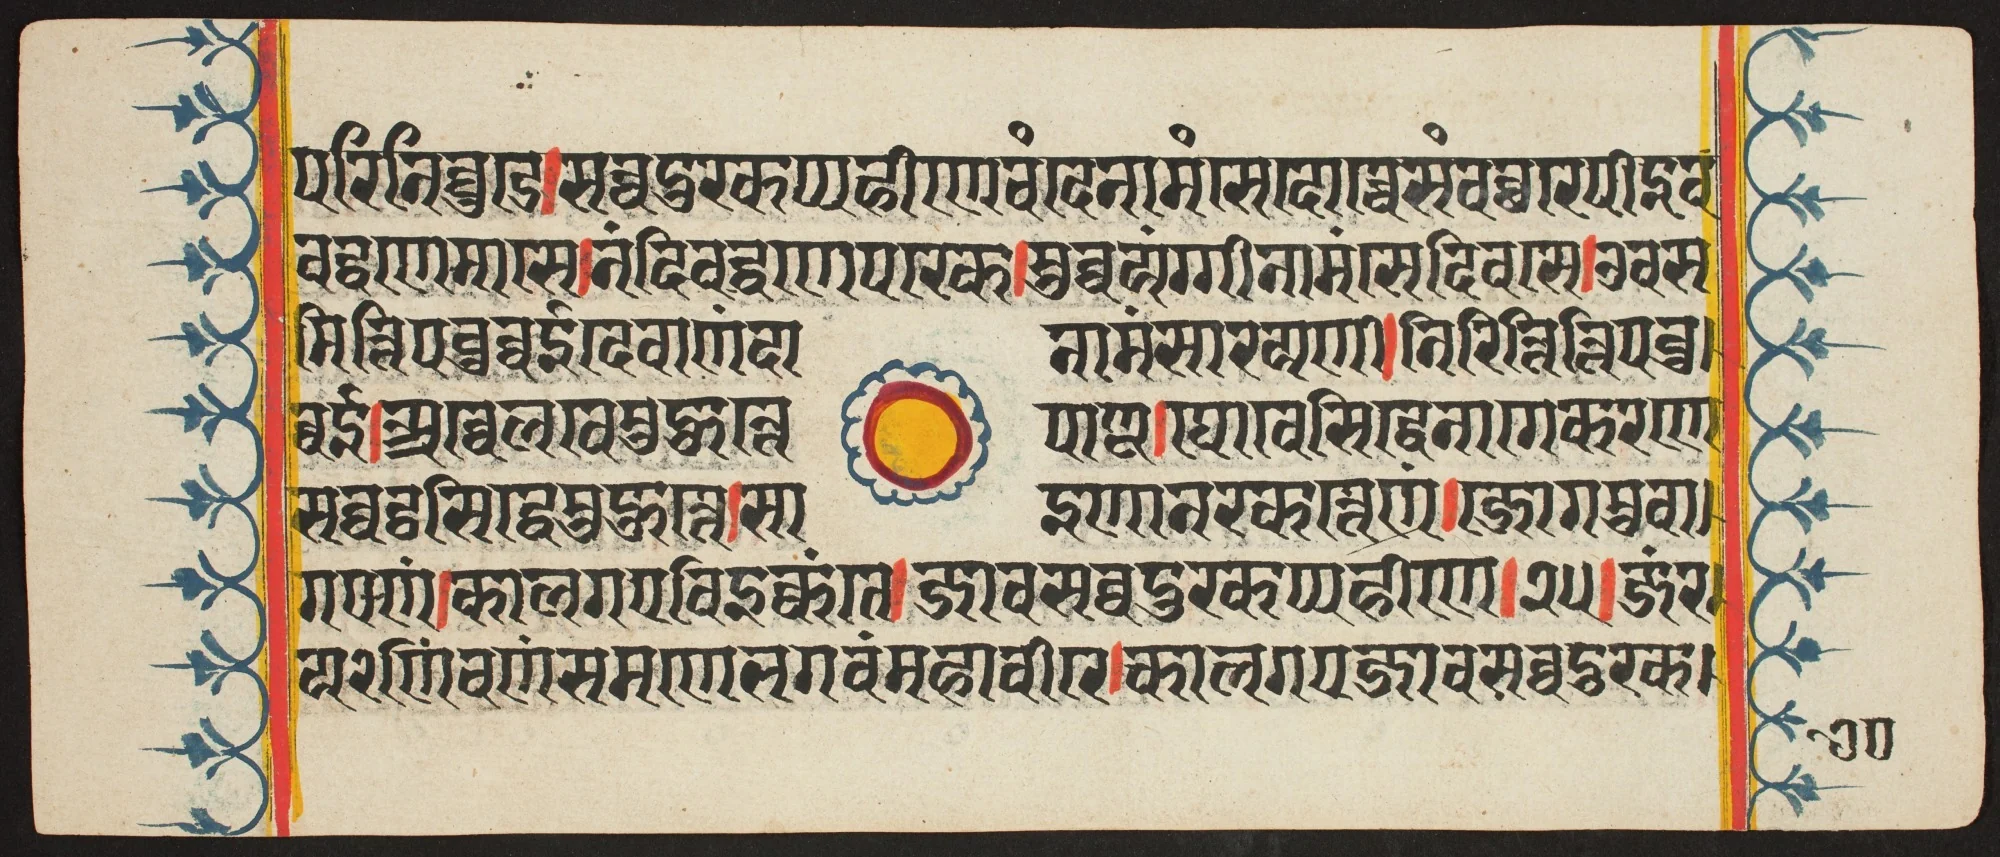 परिनिव्वुडे।सव्वदुरकप्पहीणे चंदे नामं से दोच्चे संवच्छरे पीइव
वद्धणे मासे।नंदिवद्धणे परके।सुव्वयंग्गी नामं से दिवसे।उवस
मित्तिपवुच्चई देवाणंदा नामं सा रयणी।निरित्तित्तिपवुच्च
चई।अच्चे लवे मुहुत्ते पाणू।थोवे सिद्धे नागे करणे
सव्वट्ठसिद्धे मुहुत्ते।साइणा नरकत्तेणं।जोगमुवा
गएणं।कालगए विइक्कंते।जाव सव्वदुरकप्पहीणे।२५।जं र
यणिं च णं समणे भगवं महावीरे।कालगए जाव सव्वदुरक
७०